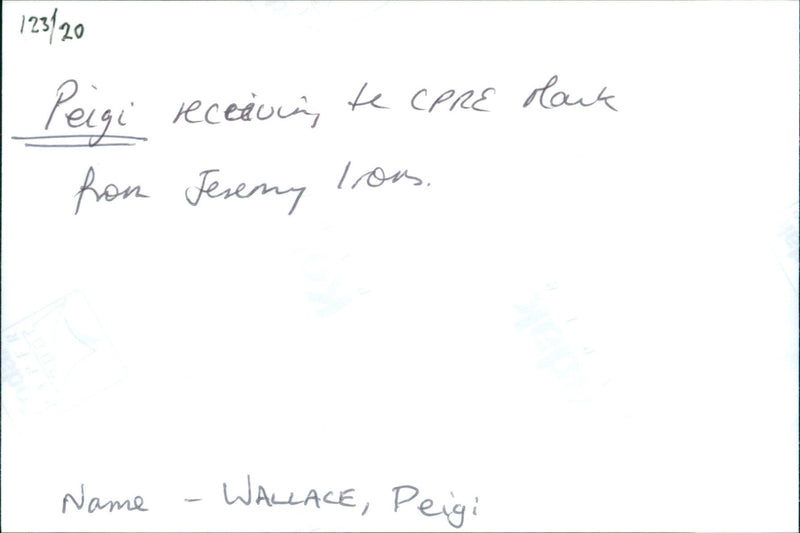 123/20
Peigi receiving te CPRE Mark
from Jeremy Irons.
Name - WALLACE, Peigi